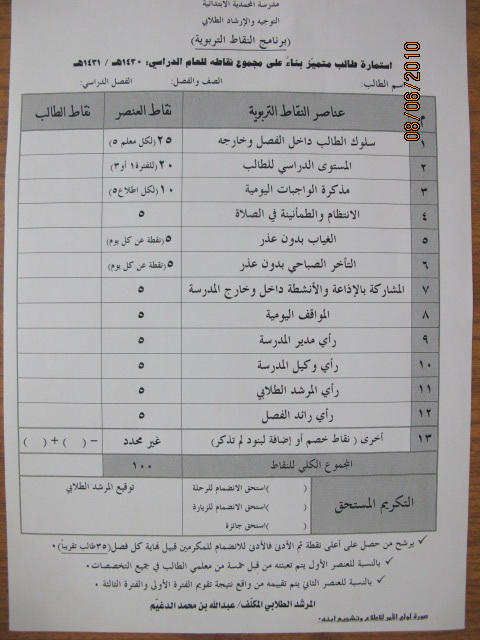 مدرسة المحمدية الابتدائية
التوجيه والإرشاد الطلابي
(برنامج النقاط التربوية)
استمارة طالب متميّز بناءً على مجموع نقاطه للعام الدراسي: ١٤٣٠هـ / ١٤٣١هـ
اسم الطالب: الصف والفصل: الفصل الدراسي:
م عناصر النقاط التربوية نقاط العنصر نقاط الطالب
١ سلوك الطالب داخل الفصل وخارجه ٢٥ (لكل معلم ٥)
٢ المستوى الدراسي للطالب ٢٠ (للفترة ١ أو٣)
٣ مذكرة الواجبات اليومية ١٠ (لكل اطلاع٥)
٤ الانتظام والطمأنينة في الصلاة ٥
٥ الغياب بدون عذر ٥ (نقطة عن كل يوم)
٦ التأخر الصباحي بدون عذر ٥ (نقطة عن كل يوم)
٧ المشاركة بالإذاعة والأنشطة داخل وخارج المدرسة ٥
٨ المواقف اليومية ٥
٩ رأي مدير المدرسة ٥
١٠ رأي وكيل المدرسة ٥
١١ رأي المرشد الطلابي ٥
١٢ رأي رائد الفصل ٥
١٣ أخرى ( نقاط خصم أو إضافة لبنود لم تذكر) غير محدد – ( ) + ( )
المجموع الكلي للنقاط ١٠٠
التكريم المستحق
( )استحق الانضمام للرحلة
( )استحق الانضمام للزيارة
( )استحق جائزة
توقيع المرشد الطلابي
✓ يرشح من حصل على أعلى نقطة ثم الأدنى فالأدنى للانضمام للمكرمين قبيل نهاية كل فصل(٣٥طالب تقريباً) .
✓ بالنسبة للعنصر الأول يتم تعبئته من قبل خمسة من معلمي الطالب في جميع التخصصات .
✓ بالنسبة للعنصر الثاني يتم تقييمه من واقع نتيجة تقويم الفترة الأولى والفترة الثالثة .
المرشد الطلابي المكلّف/ عبدالله بن محمد الدغيّم
صورة لولي الأمر للاطلاع وتشجيع ابنه .
08/06/2010